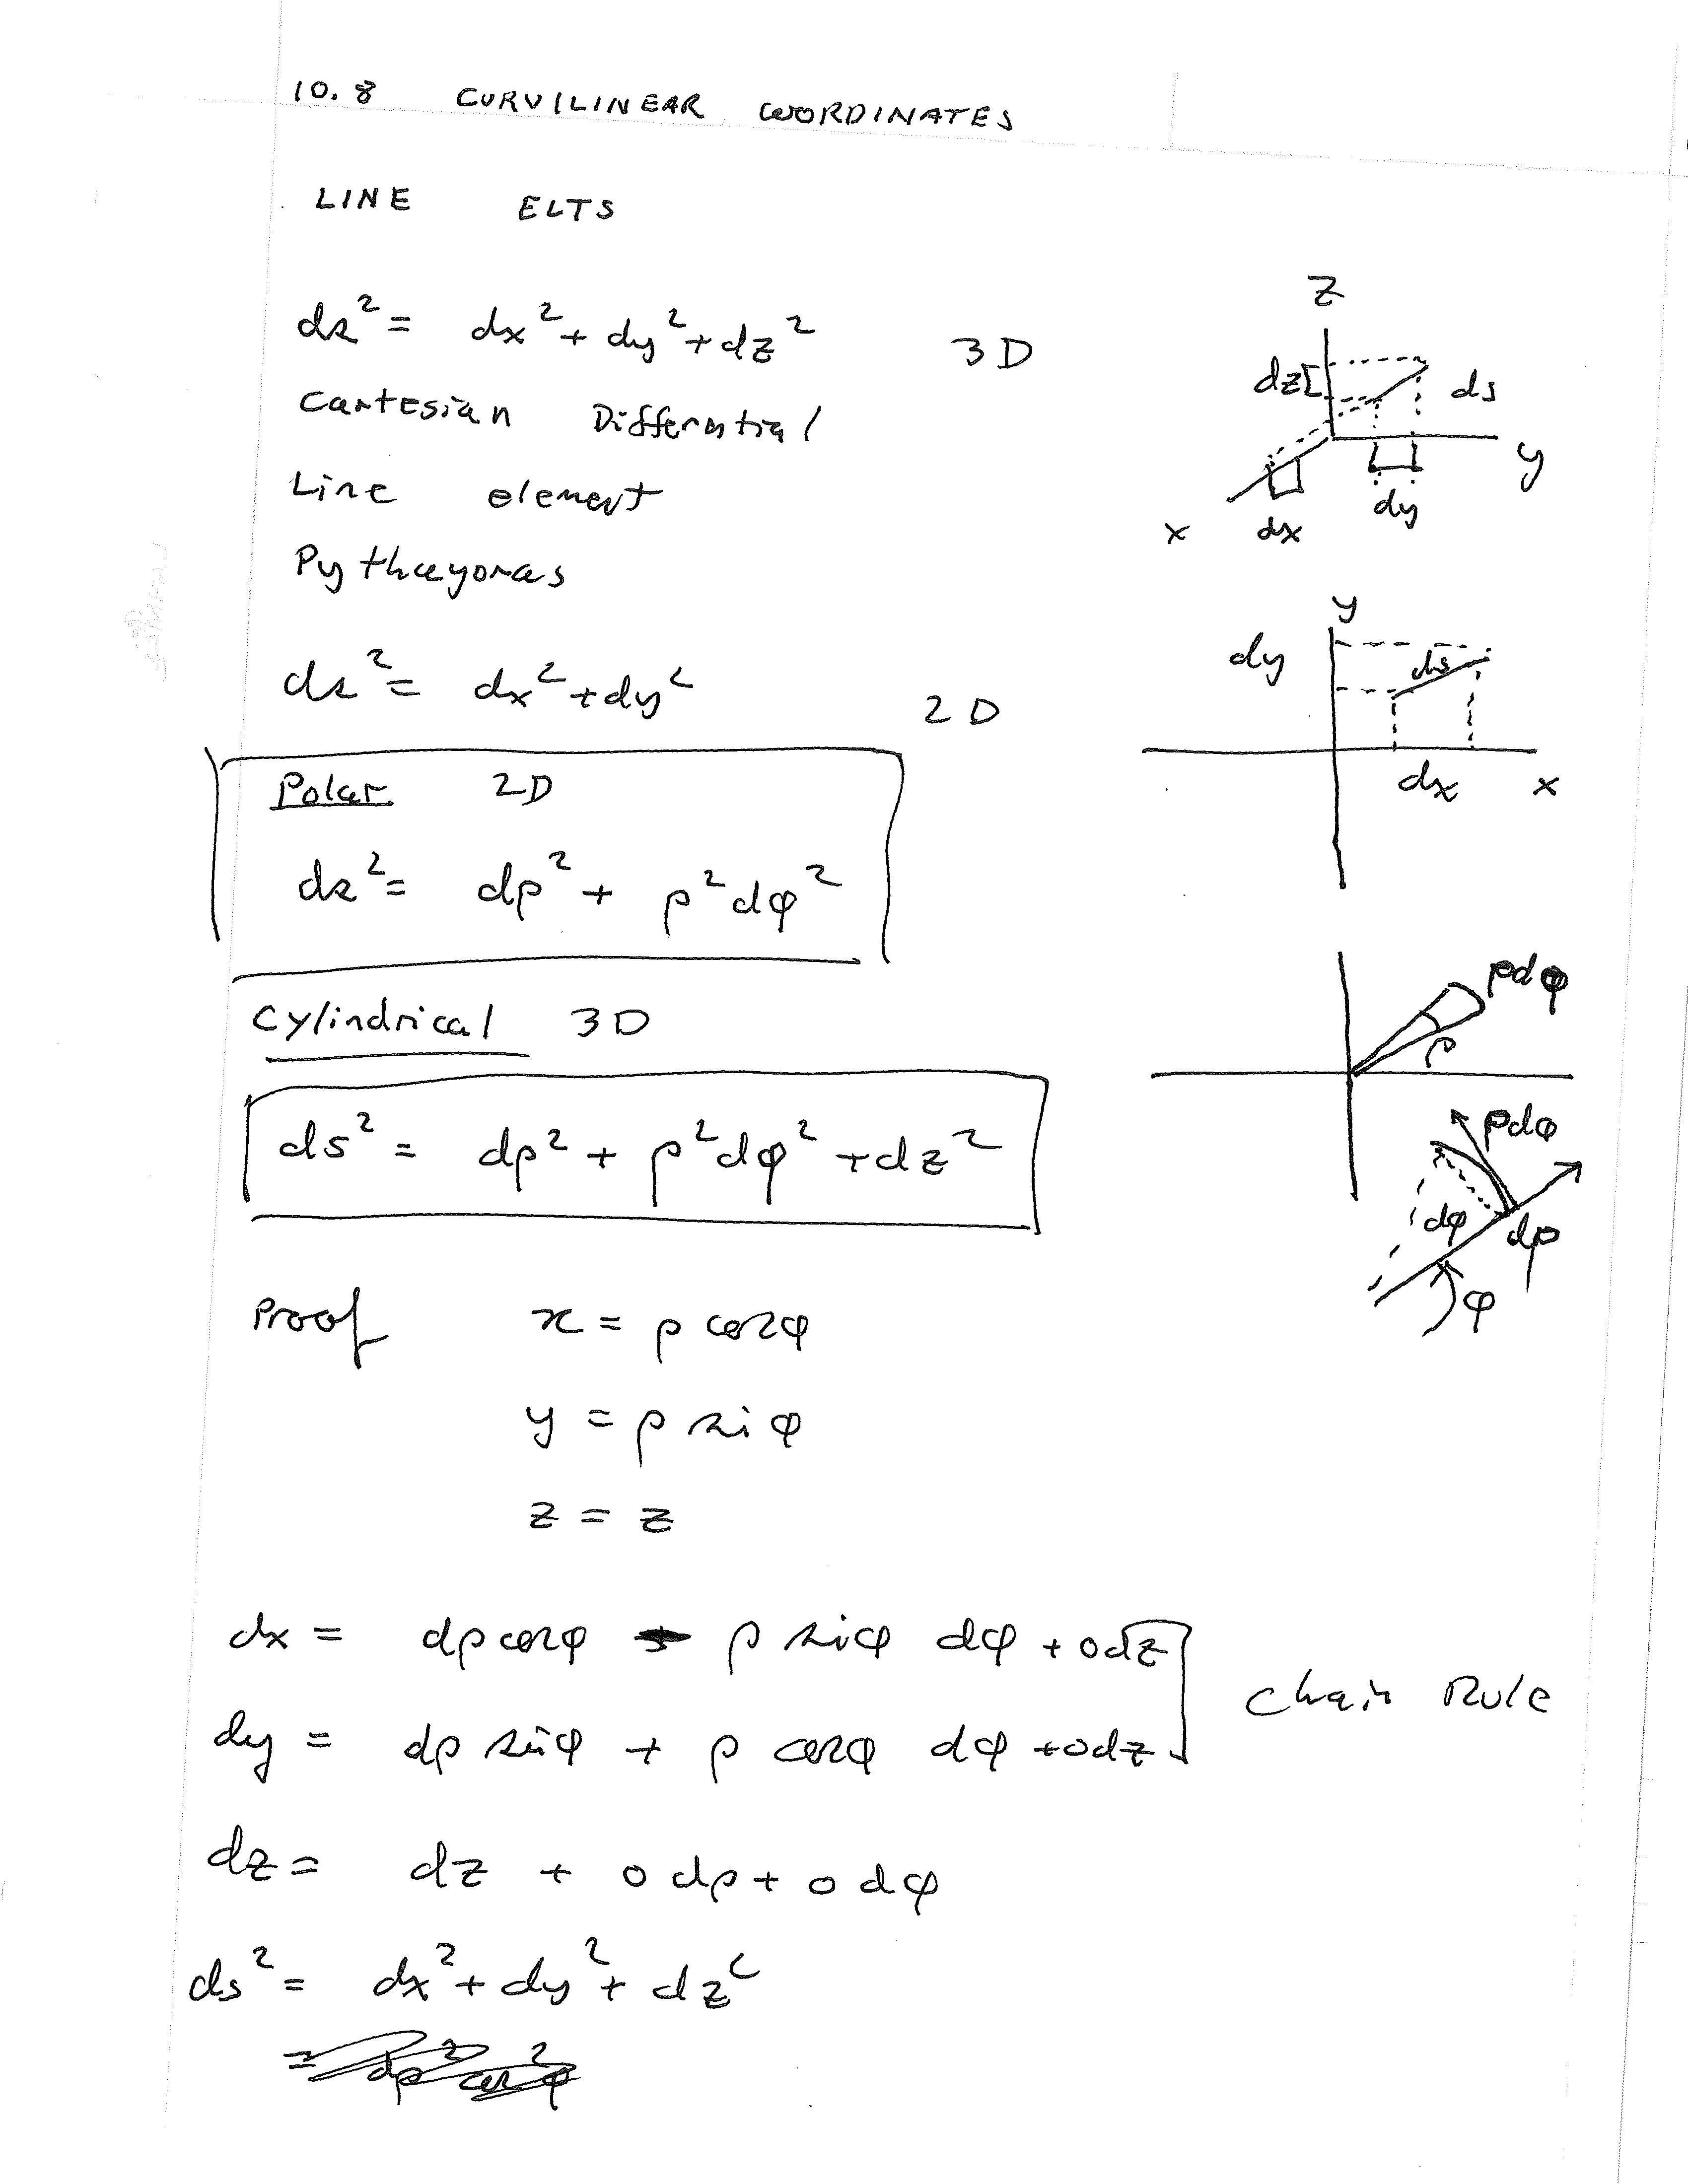 10.8 CURVILINEAR COORDINATES
LINE ELTS
ds² = dx² + dy² + dz² 3D
Cartesian Differential
Line element
Pythagoras
z
dz
ds
y
dy
x
dx
ds² = dx² + dy² 2D
y
dy
ds
dx
x
Polar 2D
ds² = dρ² + ρ²dφ²
Cylindrical 3D
ρdφ
ρ
ds² = dρ² + ρ²dφ² + dz²
ρdφ
dφ
dρ
φ
Proof x = ρ cosφ
y = ρ sinφ
z = z
dx = dρ cosφ - ρ sinφ dφ + 0dz
Chain Rule
dy = dρ sinφ + ρ cosφ dφ + 0dz
dz = dz + 0 dρ + 0 dφ
ds² = dx² + dy² + dz²
= dρ² cos²φ